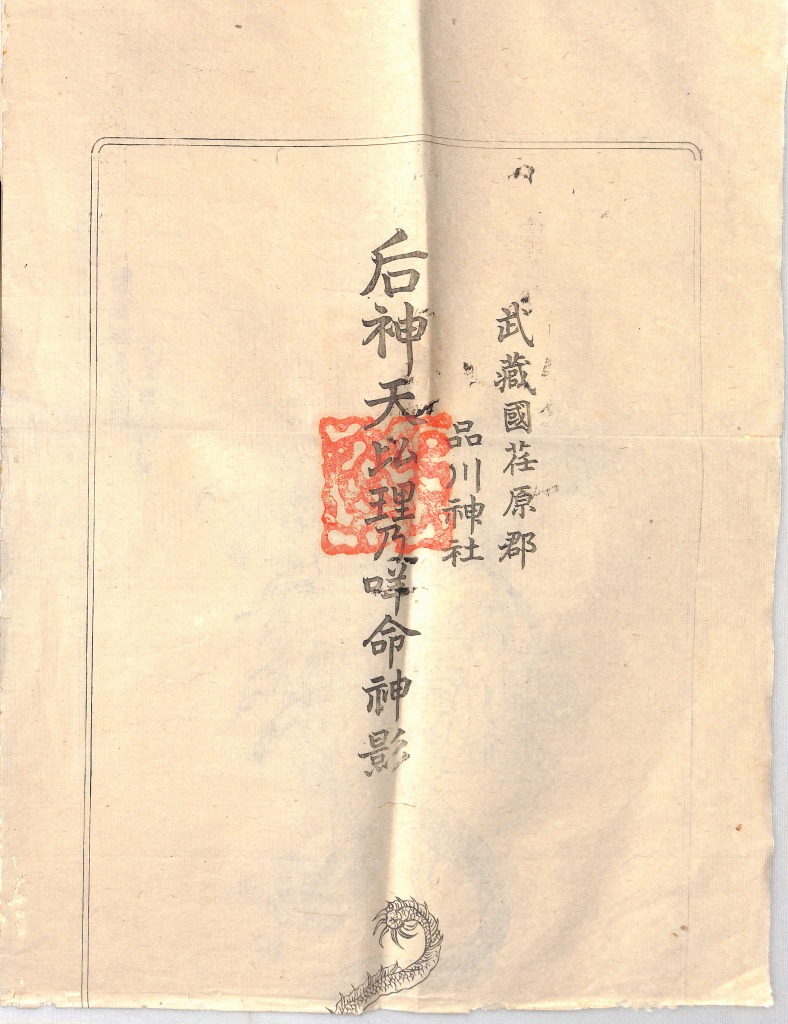 武藏國荏原郡
品川神社
后神天比理乃咩命神影